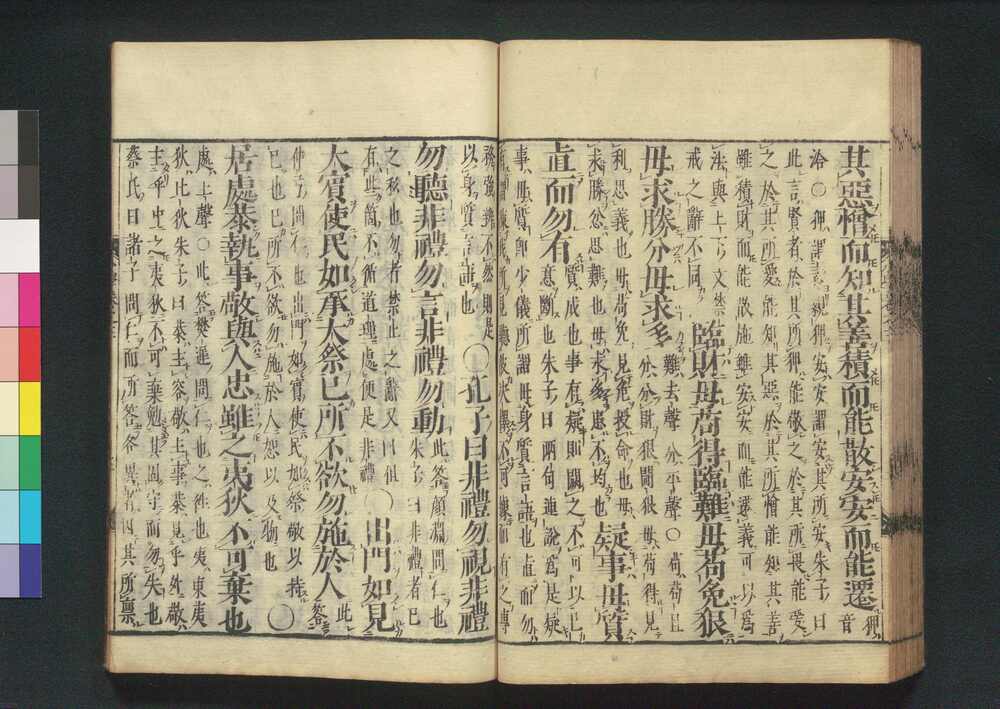 其惡憎而知其善積而能散安安而能遷 狎音
洽○狎謂親狎安謂安其所安朱子曰
此言賢者於其所狎能敬之於其所畏能愛
之於其所愛能知其惡於其所憎能知其善
雖積財而能散施雖安安而能遷義可以爲
法與上下文禁
戒之辭不同
臨財毋苟得臨難毋苟免狠
毋求勝分毋求多
難去聲分平聲○苟苟且
分分財狠鬩狠毋苟得見
利思義也毋苟免見危授命也毋
求勝忿思難也毋求多患不均也
疑事毋質
直而勿有
質成也事有疑則闕之不可以己
意斷也朱子曰兩句連說爲是疑
事毋質即少儀所謂毋身質言語也直而勿
有謂陳我所見聽彼決擇不可據而有之專
務強辨不然則是
以身質言語也
○孔子曰非禮勿視非禮
勿聽非禮勿言非禮勿動
此答顏淵問仁也
朱子曰非禮者己
之私也勿者禁止之辭又曰但
有些箇不循道理處便是非禮
○出門如見
大賓使民如承大祭己所不欲勿施於人 此答
仲弓問仁也出門如賓使民如祭敬以持
己也己所不欲勿施於人恕以及物也
○
居處恭執事敬與人忠雖之夷狄不可棄也
處上聲○此答樊遲問仁也之往也夷東夷
狄北狄朱子曰恭主容敬主事恭見乎外敬
主乎中之夷狄不可棄勉其固守而勿失也
蔡氏曰諸子問仁而所答各異者因其所稟